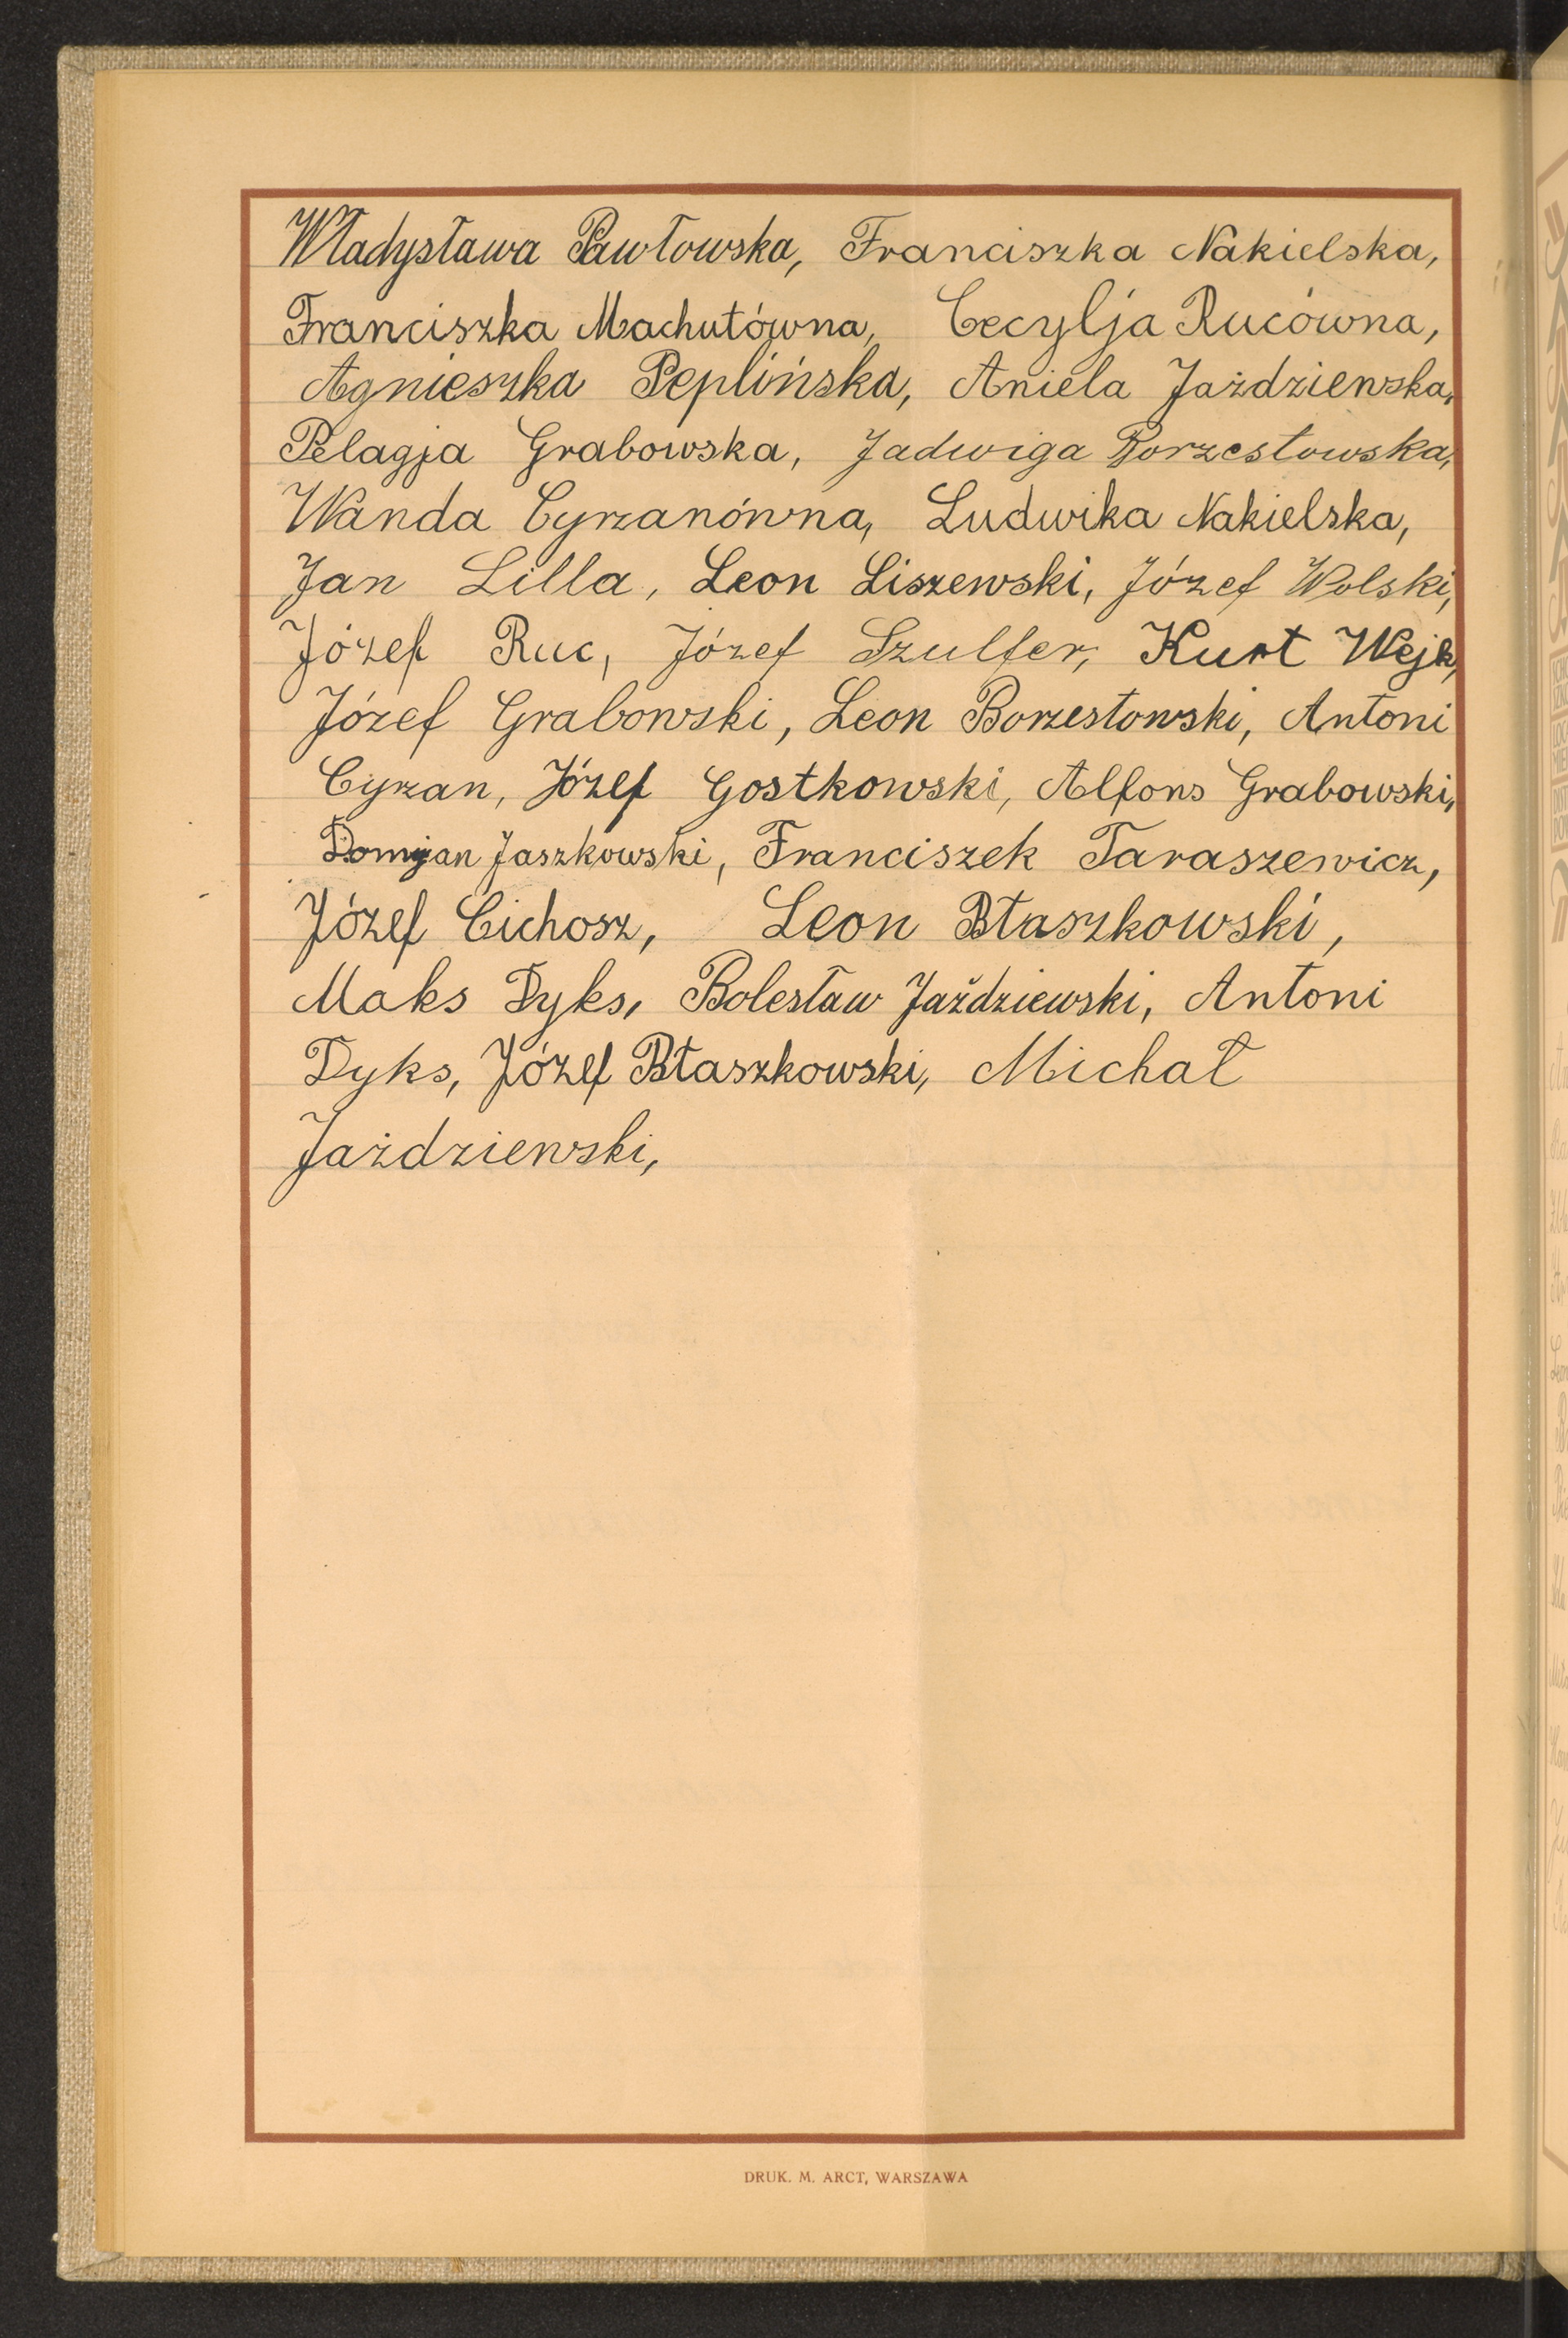 Władysława Pawłowska, Franciszka Nakielska,
Franciszka Machutówna, Cecylja Rucówna,
Agnieszka Peplińska, Aniela Jażdziewska,
Pelagja Grabowska, Jadwiga Borzestowska,
Wanda Cyrzanówna, Ludwika Nakielska,
Jan Lilla, Leon Liszewski, Józef Wolski,
Józef Ruc, Józef Szulfer, Kurt Wejk,
Józef Grabowski, Leon Borzestowski, Antoni
Cyrzan, Józef Gostkowski, Alfons Grabowski,
Domjan Jaszkowski, Franciszek Taraszewicz,
Józef Cichosz, Leon Błaszkowski,
Maks Dyks, Bolesław Jażdziewski, Antoni
Dyks, Józef Błaszkowski, Michał
Jażdziewski,
DRUK. M. ARCT, WARSZAWA